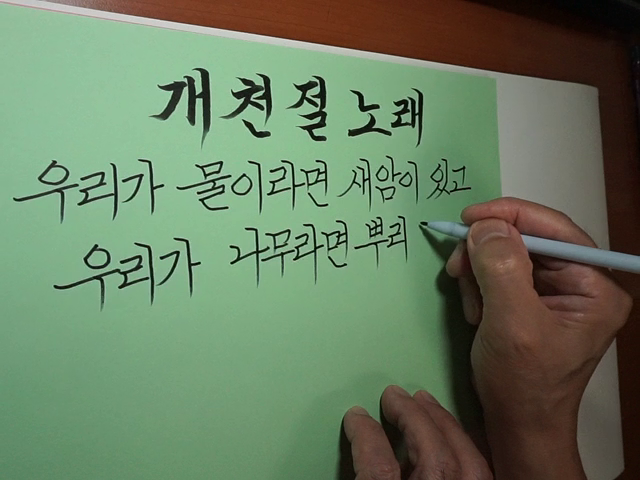 개천절 노래
우리가 물이라면 새암이 있고
우리가 나무라면 뿌리